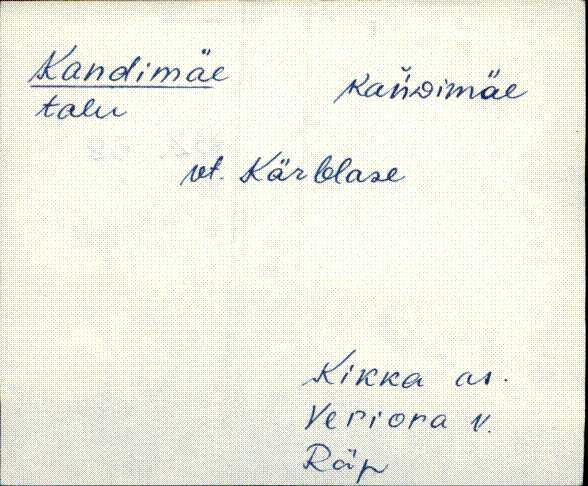 Kandimäe kaňDimäe
talu
vt. Kärblase
Kikka as.
Veriora v.
Räp